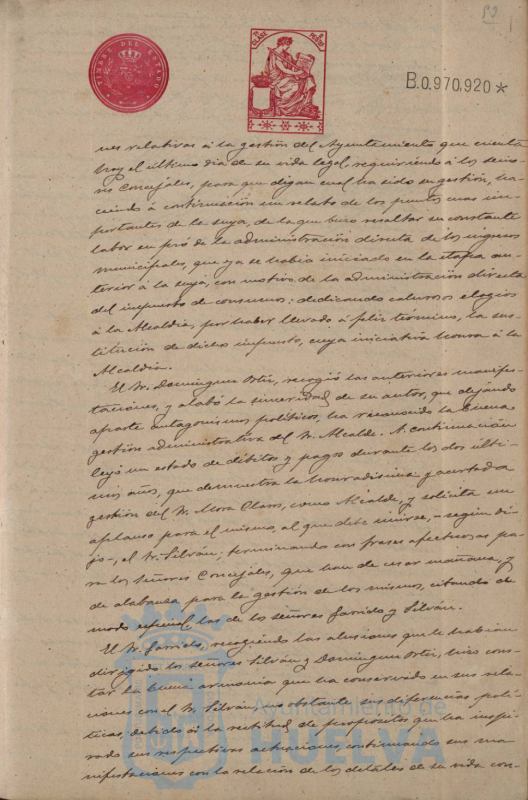 TIMBRE DEL ESTADO
11ª CLASE
B.0.970.920*
nes relativas á la gestión del Ayuntamiento que cuenta
hoy el último dia de su vida legal, requiriendo á los seño-
res Concejales, para que digan cual ha sido su gestión, ha-
ciendo á continuación un relato de los puntos mas im-
portantes de la suya, de la que hizo resaltar su constante
labor en pró de la administración directa de los ingresos
municipales, que ya se habia iniciado en la etapa an-
terior á la suya, con motivo de la administración directa
del impuesto de consumos; dedicando calurosos elogios
á la Alcaldia, por haber llevado á feliz término, la sus-
titución de dicho impuesto, cuya iniciativa honra á la
Alcaldia.
El Sr. Dominguez Ortiz, recogió las anteriores manifes-
taciones, y alabó la sinceridad de su autor, que dejando
aparte antagonismos politicos, ha reconocido la buena
gestión administrativa del Sr. Alcalde. A continuación
leyó un estado de débitos y pagos durante los dos últi-
mos años, que demuestra la honradisima y acertada
gestión del Sr. Mora Claros, como Alcalde, y solicita un
aplauso para el mismo, al que debe unirse, - según di-
jo -, el Sr. Silván; terminando con frases afectuosas pa-
ra los señores Concejales, que han de cesar mañana, y
de alabanza para la gestión de los mismos, citando de
modo especial, las de los señores Garrido y Silván.
El Sr. Garrido, recogiendo las alusiones que le habian
dirigido los señores Silván y Dominguez Ortiz, hizo cons-
tar la buena armonia que ha conservado en sus rela-
ciones con el Sr. Silván, no obstante sus diferencias poli-
ticas, debido á la rectitud de propósitos que ha inspi-
rado sus respectivas actuaciones, continuando sus ma-
nifestaciones con la relación de los detalles de su vida con-
Ayuntamiento de
HUELVA